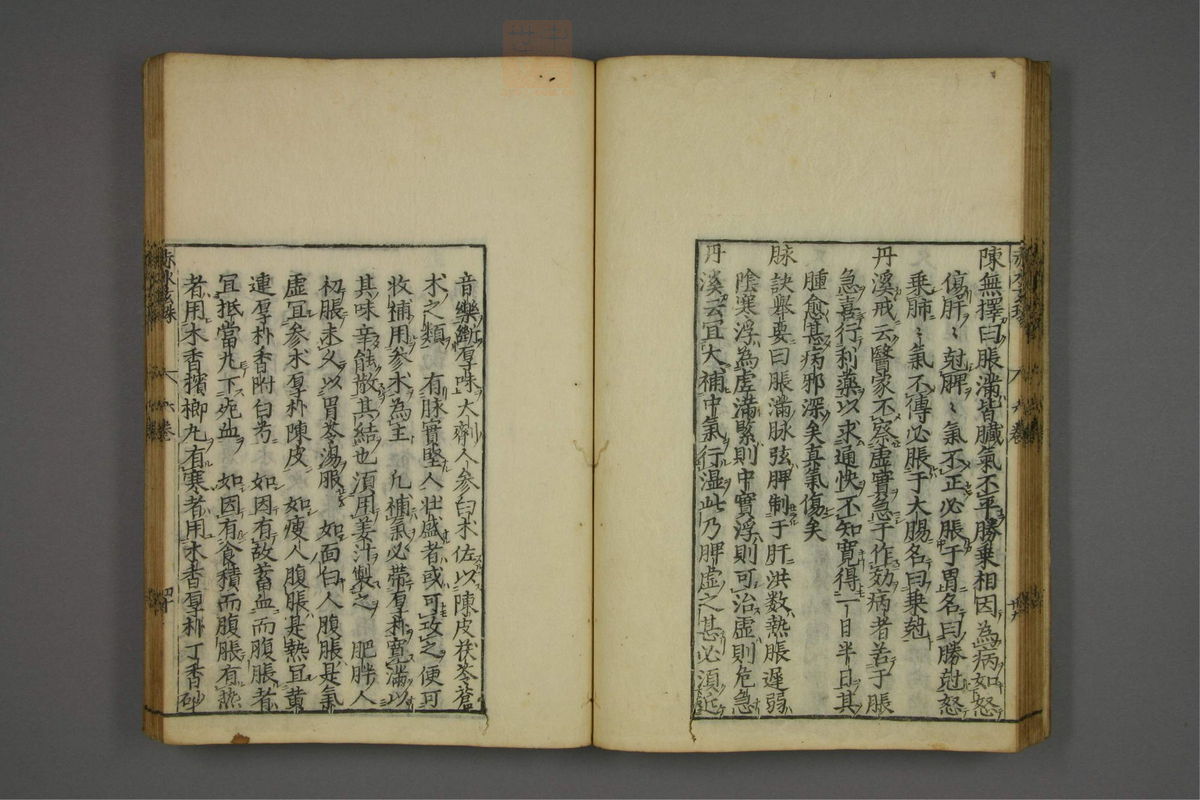 陳無擇曰脹滿皆臟氣不平勝乘相因為病如怒
傷肝〻尅脾〻氣不正必脹于胃名曰勝尅怒
乘肺〻氣不傳必脹于大腸名曰乗尅
丹溪戒云醫家不察虛實急于作効病者苦于脹
急喜行利藥以求通快不知寬得一日半日其
腫愈甚病邪深矣真氣傷矣
脉訣舉要曰脹滿脉弦脾制于肝洪数熱脹遲弱
陰寒浮為虗滿緊則中實浮則可治虛則危急
丹溪云宜大補中氣行湿此乃脾虛之甚必須近
音樂斷厚味大劑人參白朮佐以陳皮茯苓蒼
朮之類 有脉實堅人壯盛者或可攻之便可
收補用參朮為主 凡補氣必帶厚朴寬滿以
其味辛能散其結也須用姜汁製之 肥胖人
初脹未久以胃苓湯服 如面白人腹脹是氣
虛宜參朮厚朴陳皮 如瘦人腹脹是熱宜黄
連厚朴香附白芍 如因有故蓄血而腹脹者
宜抵當丸下死血 如因有食積而腹脹有熱
者用木香檳榔丸有寒者用木香厚朴丁香砂